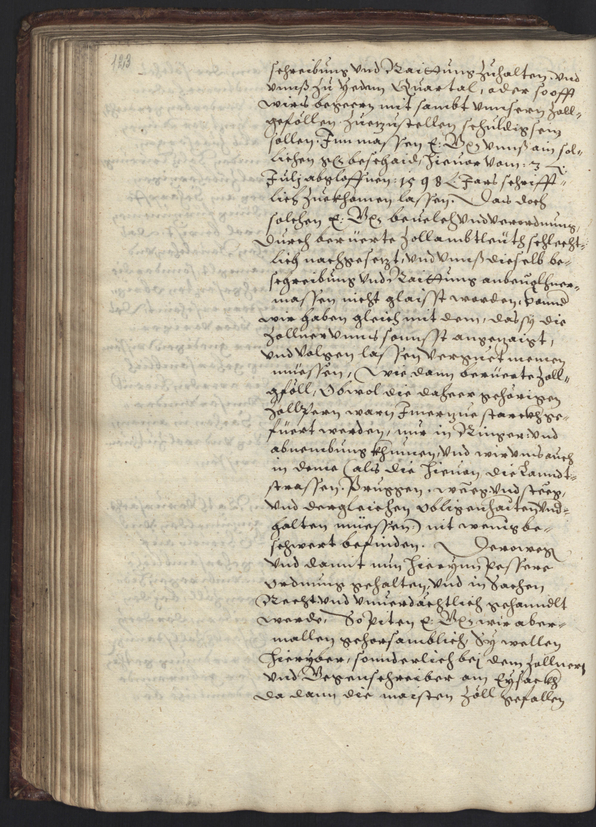 123
schreibung vnd Raittung zuhalten, vnd
vnnß zu yedem Quartal, oder so offt
wirs begeern mit sambt vnnsern Zoll-
geföllen Zuezustellen schuldig sein
sollen. Inn massen E: Gn: vnnß ain sol-
lichen beschaid, hieuor vom:
Julj abgeloffnen: 1598 Jars schrifft-
lich zuekhomen lassen. Das doch
solchen E: Gn: beuelch vnd verordnung
durch berüerte Zollambtleüth schlecht-
lich nachgesetzt, vnd vnnß dieselb be-
schreibung vnd Raittung anbeuolhner-
massen nicht glaisst worden, vnnd
wir haben gleich mit dem, das sy die
Zollner vnns sonnsst angezaigt,
vnd volgen lassen vergüet nemen
müessen, Wie dann berüerte Zoll-
gföll, Obwol die daheer gehörigen
waren Imerzue starckh ge-
füert werden, nur in Ringer: vnd
abnembung khumen, vnd wir vnns auch
in deme (als die hieuon die Lanndt-
strassen, Pruggen, weeg vnd steeg,
vnd dergleichen obligenhaiten vnd-
halten müessen) nit wenig be-
schwert befinden. Derowegen
vnd damit nun hierynn pessere
ordnung gehalten, vnd in sachen
Recht vnd vnuerdächtlich gehanndlt
werde, So piten E: Gn: wir aber-
mallen gehorsamblich, Sy wellen
hierüber, sonderlich bej dem Zollner
vnd Gegenschreiber am Eysackh
da dann die maisten Zöll gefallen